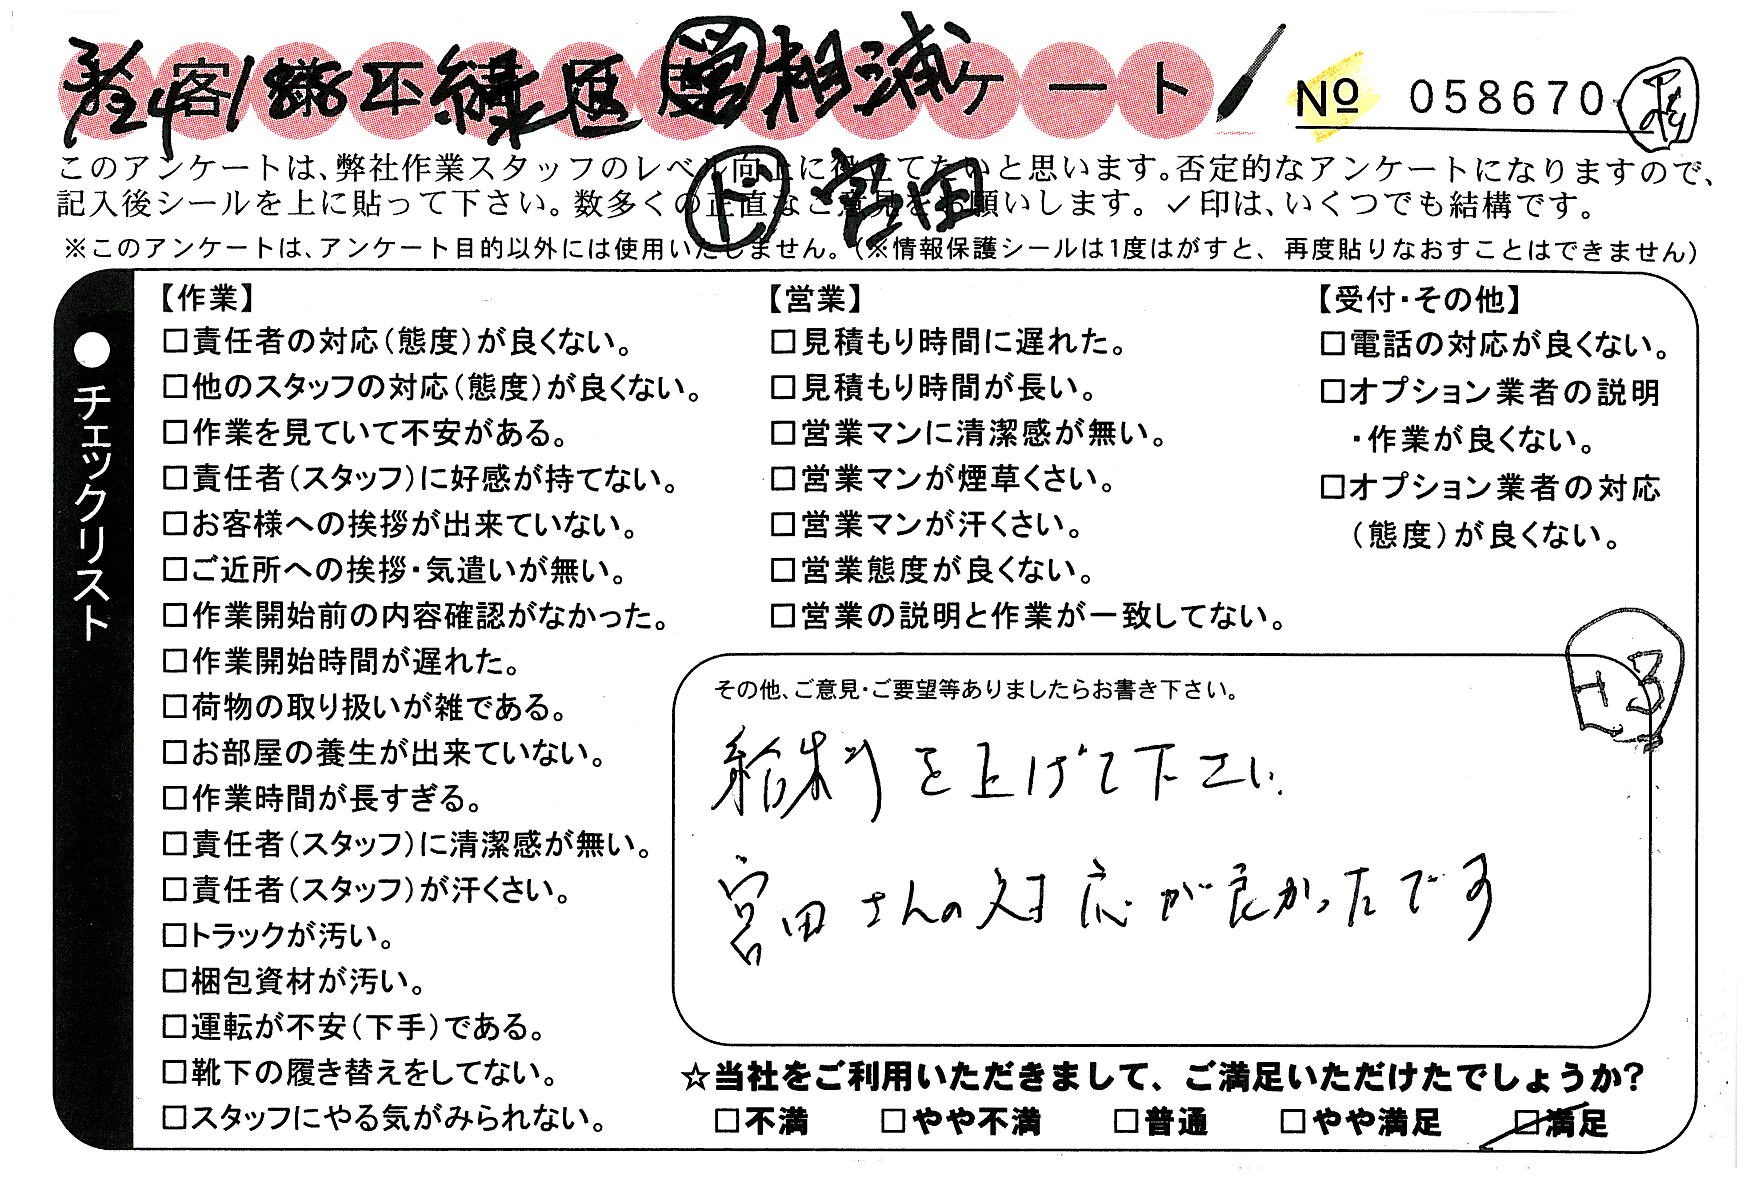 お客様不満足度アンケート
営 相浦
ド 宮田
№ 058670
このアンケートは、弊社作業スタッフのレベル向上に役立てたいと思います。否定的なアンケートになりますので、
記入後シールを上に貼って下さい。数多くの正直なご意見をお願いします。✓印は、いくつでも結構です。
※このアンケートは、アンケート目的以外には使用いたしません。(※情報保護シールは1度はがすと、再度貼りなおすことはできません)
●チェックリスト
【作業】
□責任者の対応(態度)が良くない。
□他のスタッフの対応(態度)が良くない。
□作業を見ていて不安がある。
□責任者(スタッフ)に好感が持てない。
□お客様への挨拶が出来ていない。
□ご近所への挨拶・気遣いが無い。
□作業開始前の内容確認がなかった。
□作業開始時間が遅れた。
□荷物の取り扱いが雑である。
□お部屋の養生が出来ていない。
□作業時間が長すぎる。
□責任者(スタッフ)に清潔感が無い。
□責任者(スタッフ)が汗くさい。
□トラックが汚い。
□梱包資材が汚い。
□運転が不安(下手)である。
□靴下の履き替えをしてない。
□スタッフにやる気がみられない。
【営業】
□見積もり時間に遅れた。
□見積もり時間が長い。
□営業マンに清潔感が無い。
□営業マンが煙草くさい。
□営業マンが汗くさい。
□営業態度が良くない。
□営業の説明と作業が一致してない。
【受付・その他】
□電話の対応が良くない。
□オプション業者の説明
・作業が良くない。
□オプション業者の対応
(態度)が良くない。
+3
その他、ご意見・ご要望等ありましたらお書き下さい。
給料を上げて下さい
宮田さんの対応が良かったです
☆当社をご利用いただきまして、ご満足いただけたでしょうか?
□不満 □やや不満 □普通 □やや満足 □満足